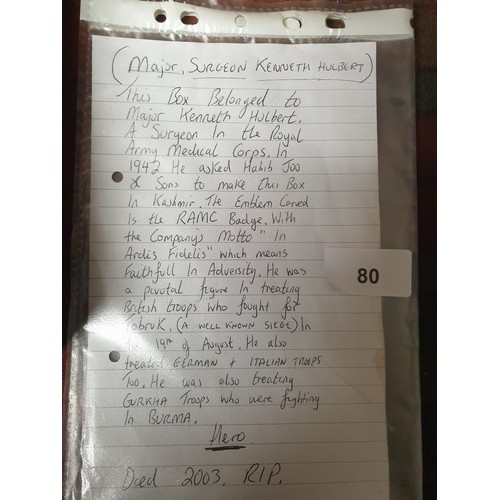 (Major, SURGEON KENNETH HULBERT)
This Box Belonged to
Major Kenneth Hulbert.
A Surgeon In the Royal
Army Medical Corps. In
1942 He asked Habib Joo
& Sons to make this Box
In Kashmir. The Emblem Carved
Is the RAMC Badge. With
the Company's Motto "In
Ardis Fidelis" which means
Faithfull In Adversity. He was
a pivotal figure In treating
British troops who fought for
Tobruk. (A WELL KNOWN SIEGE) In
the 19th of August. He also
treated GERMAN + ITALIAN TROOPS
Too. He was also treating
GURKHA Troops who were fighting
In BURMA.
Hero
Died 2003. RIP.
80